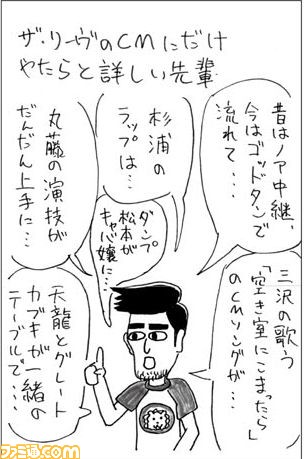 ザ・リーヴのCMにだけ
やたらと詳しい先輩
昔はノア中継、
今はゴッドタンで
流れて・・・
杉浦の
ラップは・・・
丸藤の演技が
だんだん上手に・・・
ダンプ
松本が
キャバ嬢に・・・
三沢の歌う
「空き室にこまったら」
のCMソングが・・・
天龍とグレート
カブキが一緒の
テーブルで・・・
ファミ通.com